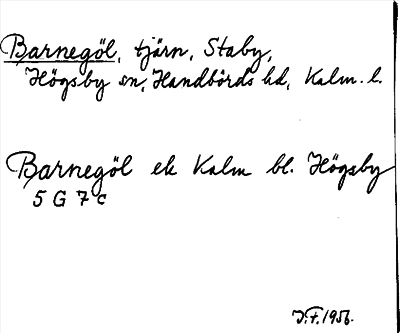 Barnegöl, tjärn, Staby,
Högsby sn, Handbörds hd, Kalm. l.
Barnegöl ek Kalm bl. Högsby
5 G 7 c
J.F. 1956.